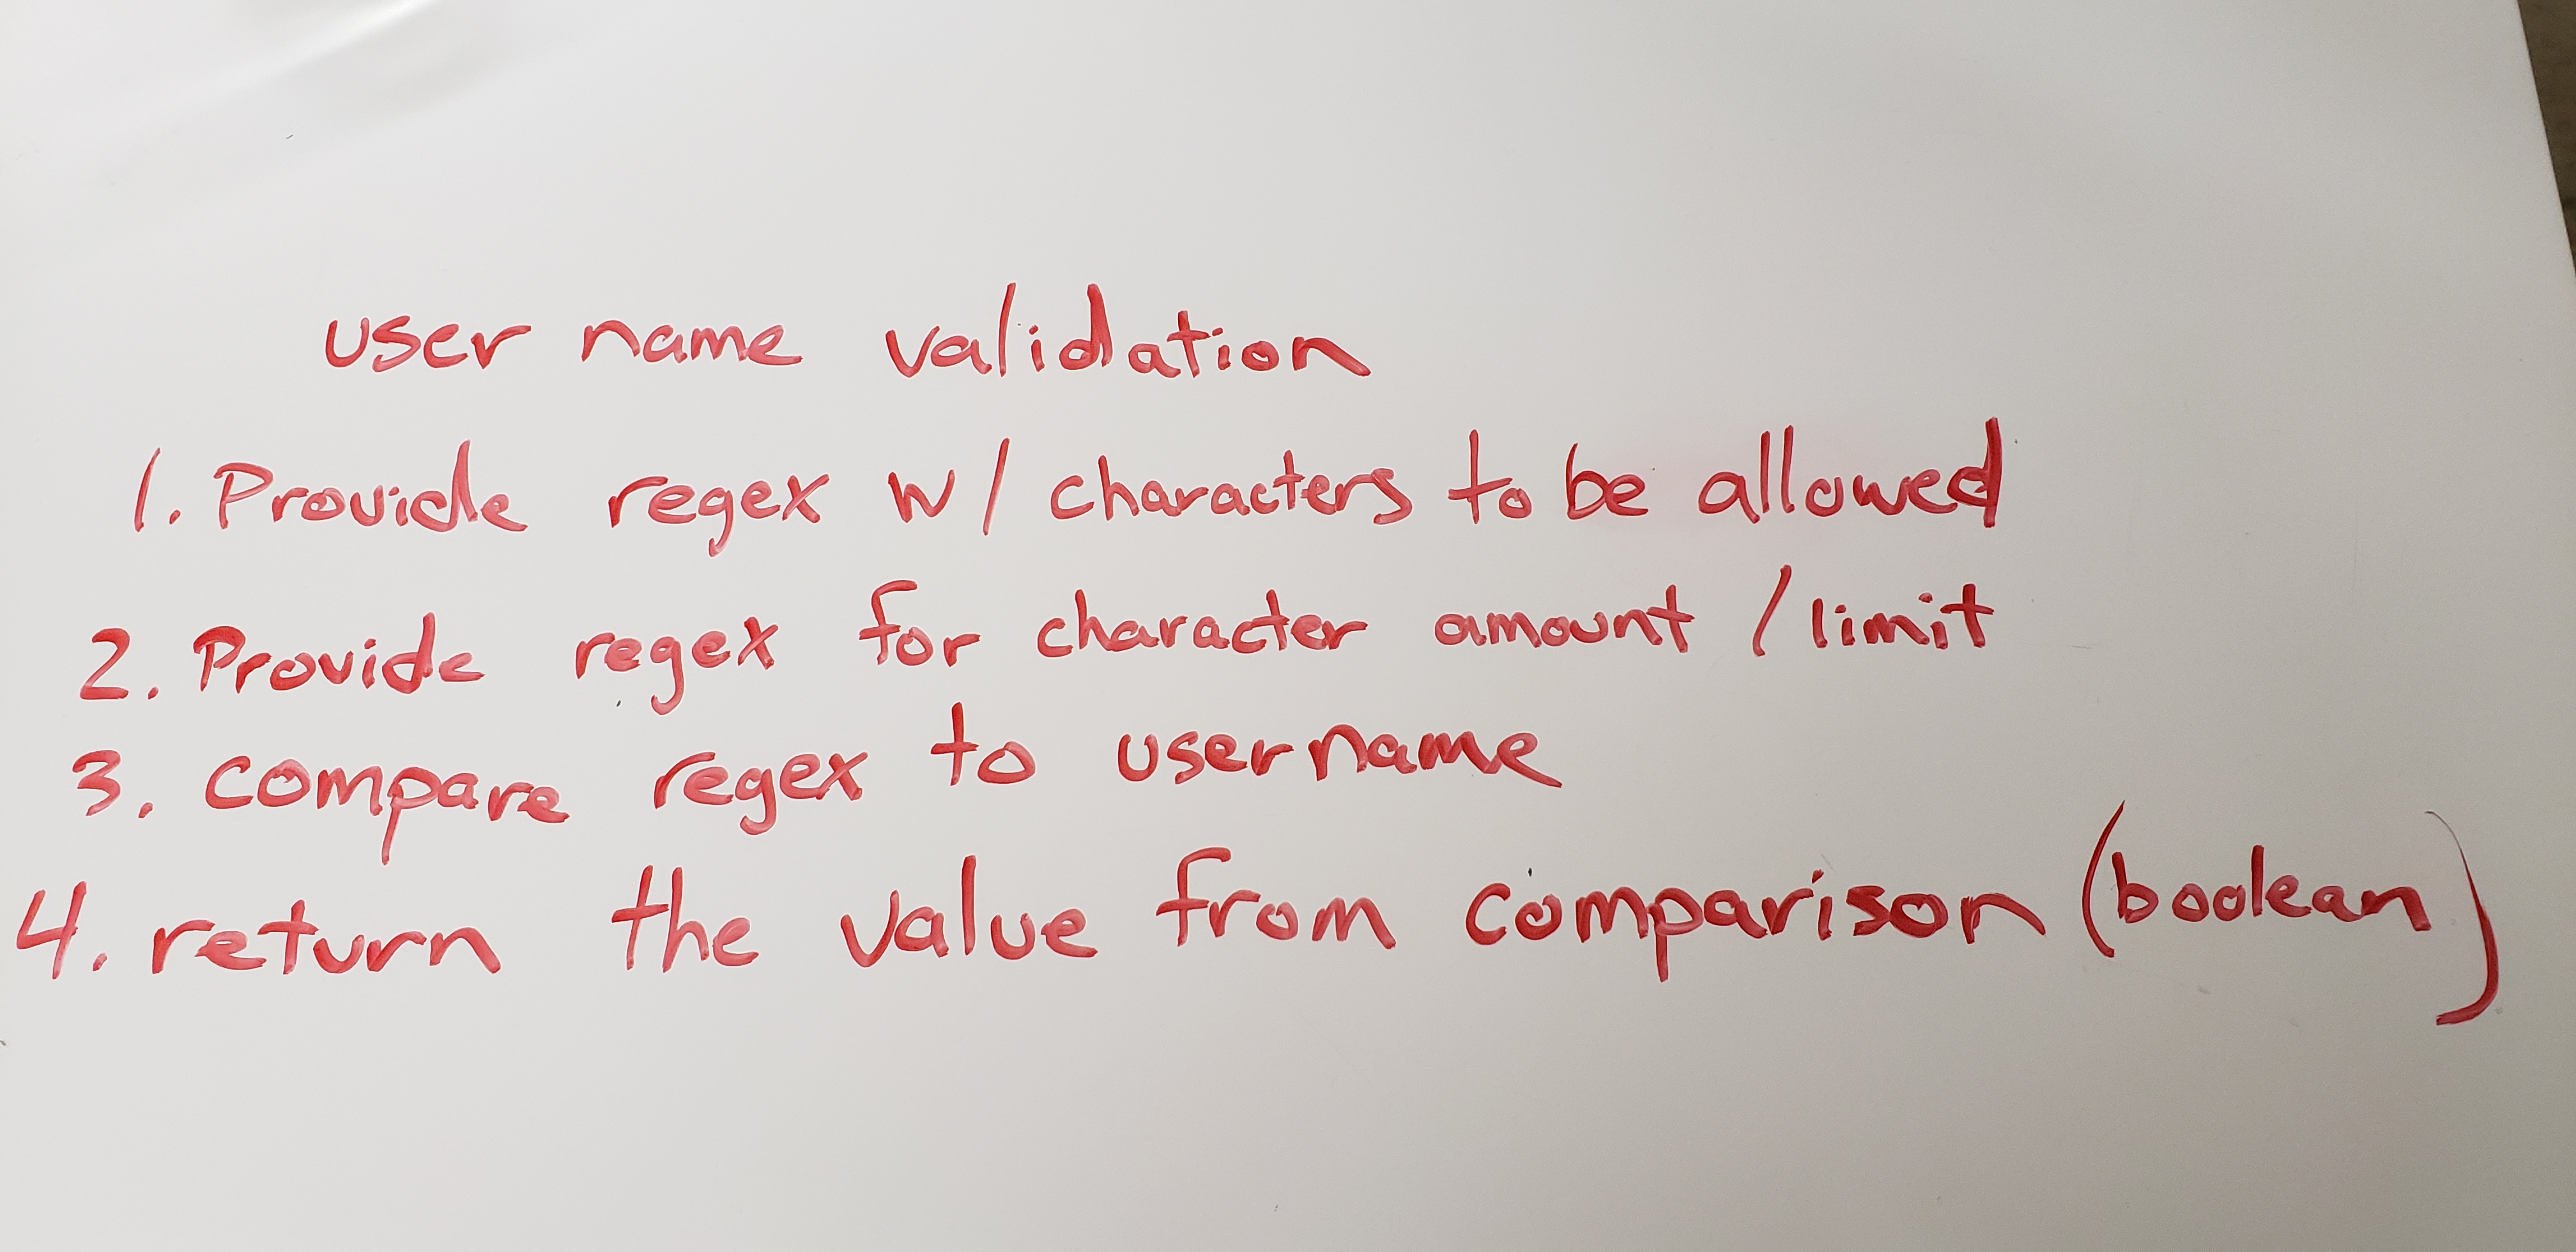 user name validation
1. Provide regex w/ characters to be allowed
2. Provide regex for character amount / limit
3. compare regex to username
4. return the value from comparison (boolean)